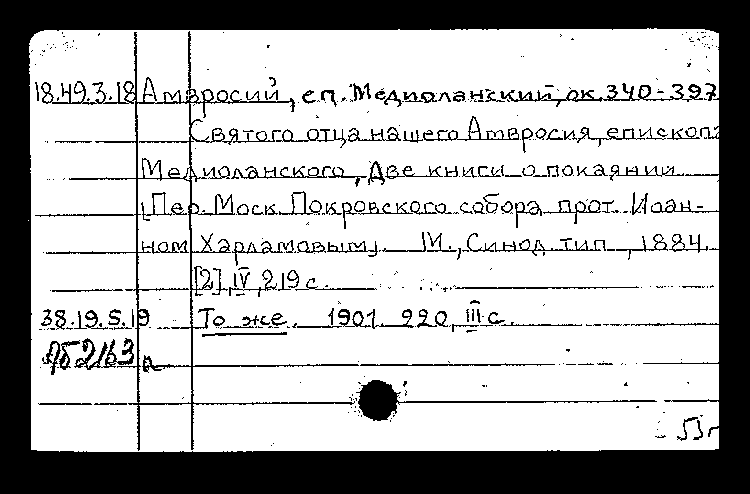 18.49.3.18 Амвросий, еп. Медиоланский, ок. 340-397
Святого отца нашего Амвросия, епископа
Медиоланского, Две книги о покаянии
[Пер. Моск. Покровского собора прот. Иоан-
ном Харламовым]. М., Синод. тип., 1884.
[2], IV, 219 с.
38.19.5.19 То же. 1901. 220, III с.